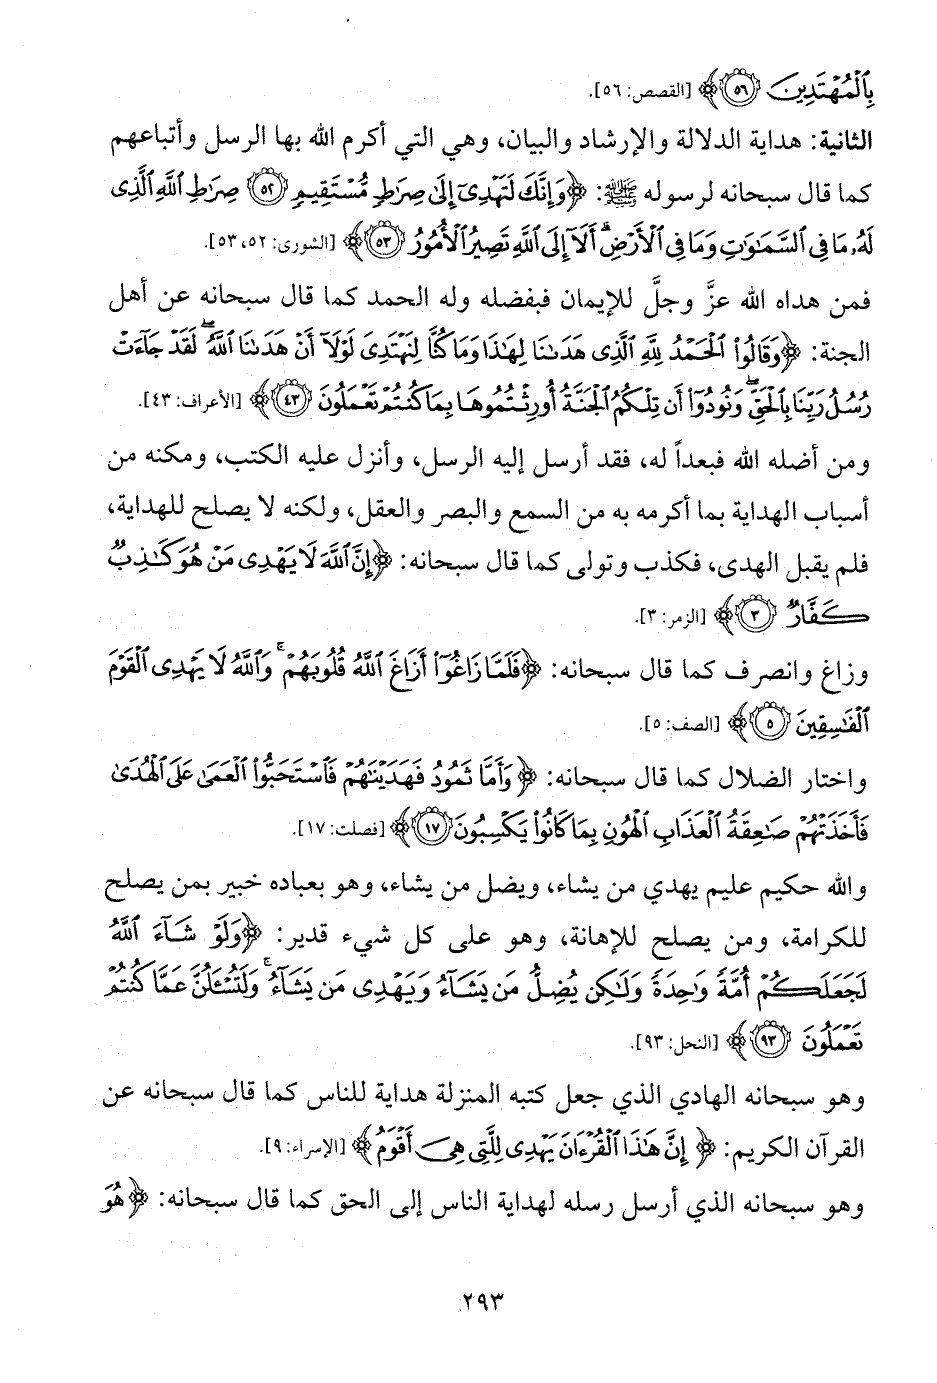 بِٱلْمُهْتَدِينَ ٥٦﴾ [القصص: ٥٦].
الثانية: هداية الدلالة والإرشاد والبيان، وهي التي أكرم الله بها الرسل وأتباعهم
كما قال سبحانه لرسوله ﷺ: ﴿وَإِنَّكَ لَتَهْدِىٓ إِلَىٰ صِرَٰطٍ مُّسْتَقِيمٍ ٥٢ صِرَٰطِ ٱللَّهِ ٱلَّذِى
لَهُۥ مَا فِى ٱلسَّمَٰوَٰتِ وَمَا فِى ٱلْأَرْضِ ۗ أَلَآ إِلَى ٱللَّهِ تَصِيرُ ٱلْأُمُورُ ٥٣﴾ [الشورى: ٥٢، ٥٣].
فمن هداه الله عزَّ وجلَّ للإيمان فبفضله وله الحمد كما قال سبحانه عن أهل
الجنة: ﴿وَقَالُوا۟ ٱلْحَمْدُ لِلَّهِ ٱلَّذِى هَدَىٰنَا لِهَٰذَا وَمَا كُنَّا لِنَهْتَدِىَ لَوْلَآ أَنْ هَدَىٰنَا ٱللَّهُ ۖ لَقَدْ جَآءَتْ
رُسُلُ رَبِّنَا بِٱلْحَقِّ ۖ وَنُودُوٓا۟ أَن تِلْكُمُ ٱلْجَنَّةُ أُورِثْتُمُوهَا بِمَا كُنتُمْ تَعْمَلُونَ ٤٣﴾ [الأعراف: ٤٣].
ومن أضله الله فبعداً له، فقد أرسل إليه الرسل، وأنزل عليه الكتب، ومكنه من
أسباب الهداية بما أكرمه به من السمع والبصر والعقل، ولكنه لا يصلح للهداية،
فلم يقبل الهدى، فكذب وتولى كما قال سبحانه: ﴿إِنَّ ٱللَّهَ لَا يَهْدِى مَنْ هُوَ كَٰذِبٌ
كَفَّارٌ ٣﴾ [الزمر: ٣].
وزاغ وانصرف كما قال سبحانه: ﴿فَلَمَّا زَاغُوٓا۟ أَزَاغَ ٱللَّهُ قُلُوبَهُمْ ۚ وَٱللَّهُ لَا يَهْدِى ٱلْقَوْمَ
ٱلْفَٰسِقِينَ ٥﴾ [الصف: ٥].
واختار الضلال كما قال سبحانه: ﴿وَأَمَّا ثَمُودُ فَهَدَيْنَٰهُمْ فَٱسْتَحَبُّوا۟ ٱلْعَمَىٰ عَلَى ٱلْهُدَىٰ
فَأَخَذَتْهُمْ صَٰعِقَةُ ٱلْعَذَابِ ٱلْهُونِ بِمَا كَانُوا۟ يَكْسِبُونَ ١٧﴾ [فصلت: ١٧].
والله حكيم عليم يهدي من يشاء، ويضل من يشاء، وهو بعباده خبير بمن يصلح
للكرامة، ومن يصلح للإهانة، وهو على كل شيء قدير: ﴿وَلَوْ شَآءَ ٱللَّهُ
لَجَعَلَكُمْ أُمَّةً وَٰحِدَةً وَلَٰكِن يُضِلُّ مَن يَشَآءُ وَيَهْدِى مَن يَشَآءُ ۚ وَلَتُسْـَٔلُنَّ عَمَّا كُنتُمْ
تَعْمَلُونَ ٩٣﴾ [النحل: ٩٣].
وهو سبحانه الهادي الذي جعل كتبه المنزلة هداية للناس كما قال سبحانه عن
القرآن الكريم: ﴿إِنَّ هَٰذَا ٱلْقُرْءَانَ يَهْدِى لِلَّتِى هِىَ أَقْوَمُ﴾ [الإسراء: ٩].
وهو سبحانه الذي أرسل رسله لهداية الناس إلى الحق كما قال سبحانه: ﴿هُوَ
٢٩٣